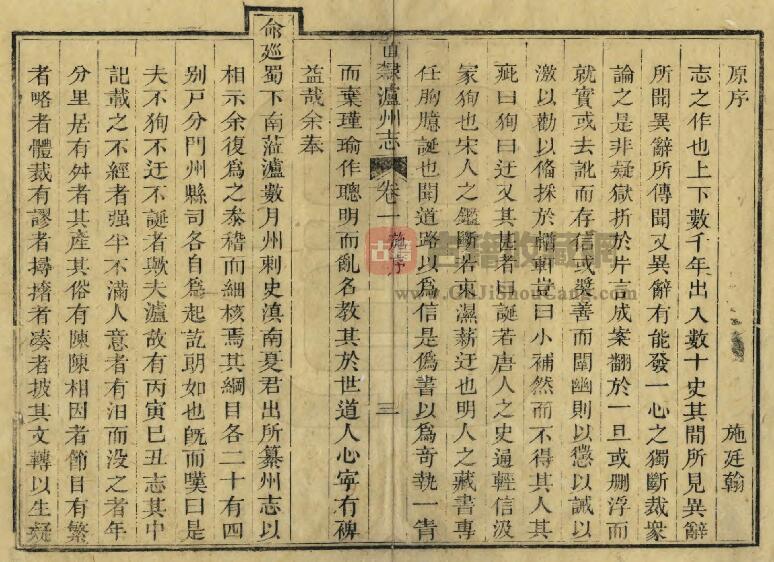 原序
施廷翰
志之作也上下數千年出入數十史其間所見異辭
所聞異辭所傳聞又異辭有能發一心之獨斷裁衆
論之是非疑獄折於片言成案翻於一旦或刪浮而
就實或去訛而存信或奬善而闡幽則以懲以誡以
激以勸以備採於輶軒豈曰小補然而不得其人其
疵曰狥曰迂又其甚者曰誕若唐人之史逼輕信汲
冢狥也宋人之鑑斷若束濕薪迂也明人之藏書專
任胸臆誕也聞道路以為信是僞書以爲竒執一眚
而棄瑾瑜作聰明而亂名教其於世道人心寕有禆
益哉余奉
直隸瀘州志 卷一 施序 三
命廵蜀下南蒞瀘數月州刺史滇南夏君出所纂州志以
相示余復爲之叅稽而細核焉其綱目各二十有四
别戸分門州縣司各自爲起訖朗如也旣而嘆曰是
夫不狥不迂不誕者歟夫瀘故有丙寅巳丑志其中
記載之不經者强半不滿人意者有汨而没之者年
分里居有舛者其產其俗有陳陳相因者節目有繁
者略者體裁有謬者撏撦者湊者披其文轉以生疑
古籍
古籍收藏網
www.GuJiShouCang.com